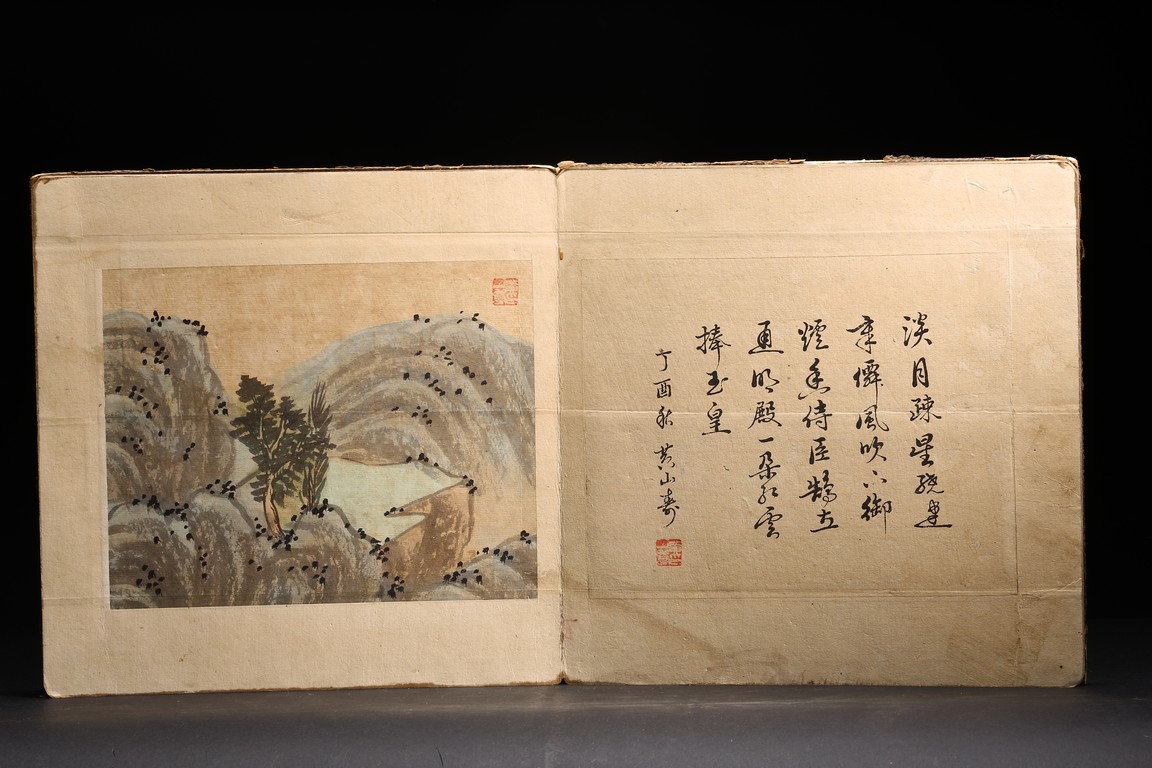 淡月疎星繞建
章僊風吹下御
爐香侍臣鵠立
通明殿一朵紅雲
捧玉皇
丁酉秋 黃山壽